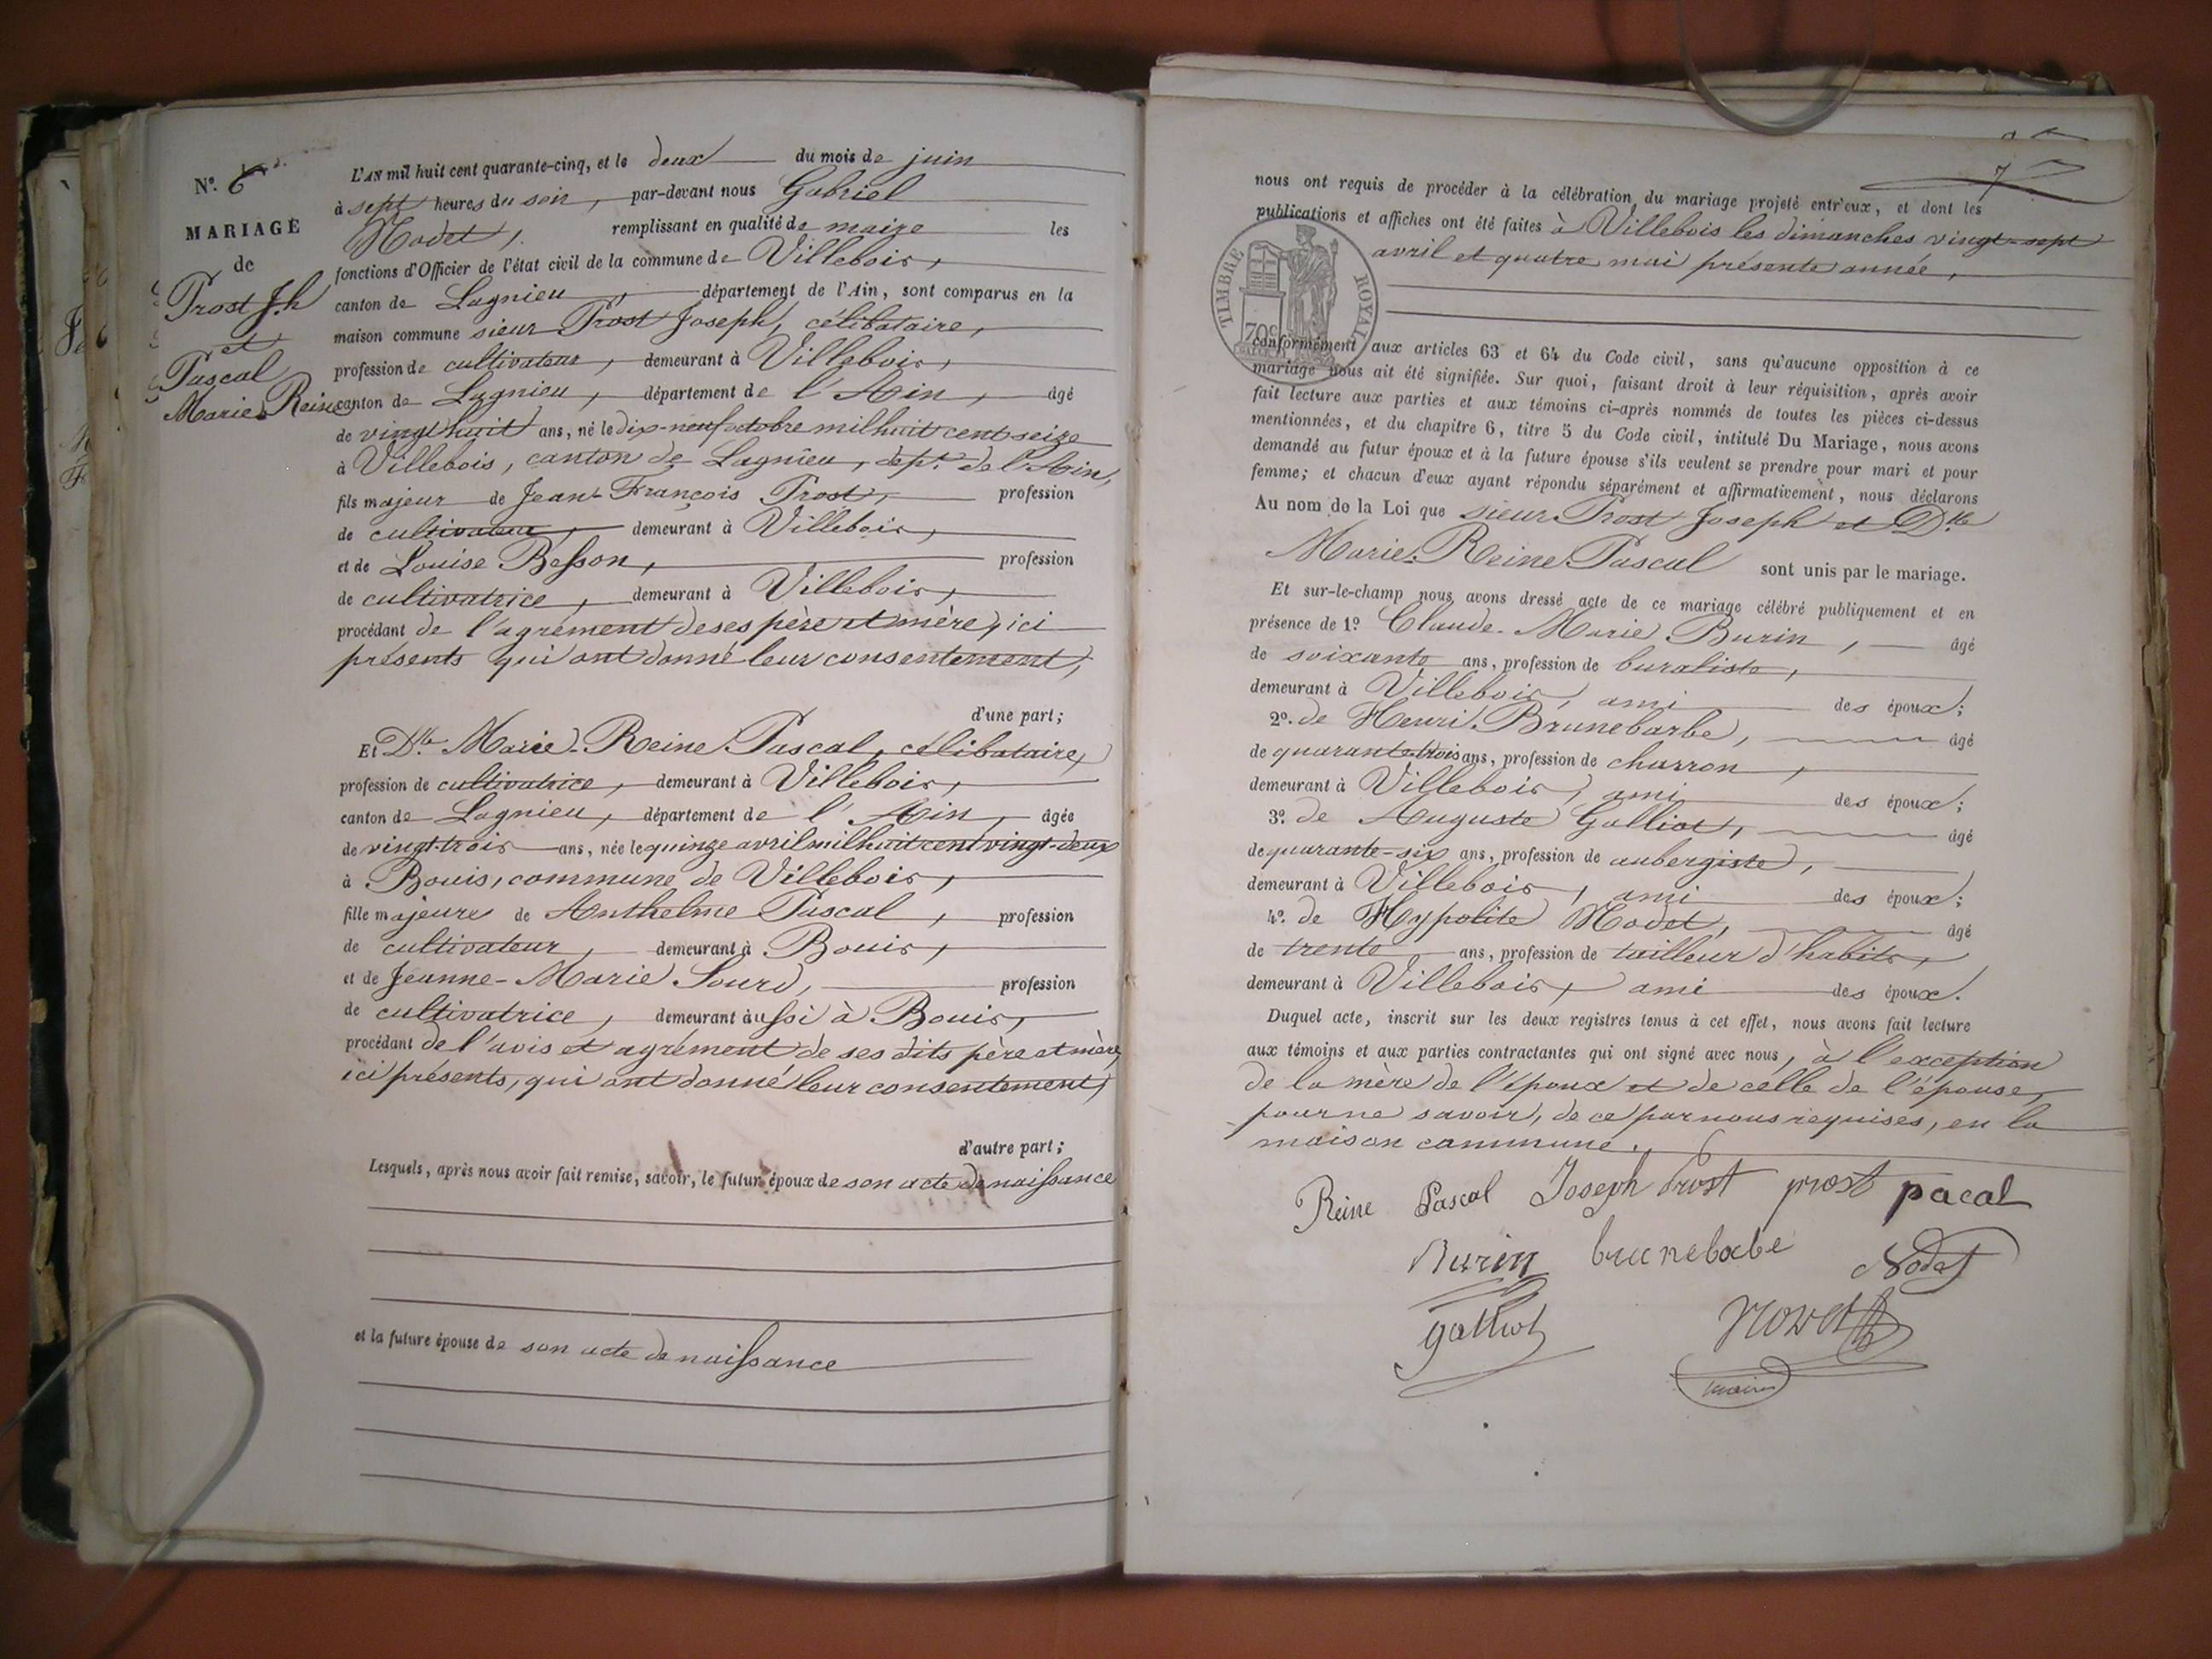 N.º 6
MARIAGE
de
Prost J.h
et
Pascal
Marie-Reine
L'AN mil huit cent quarante-cinq, et le deux du mois de juin
à sept heures du soir, par-devant nous Gabriel
Nodet, remplissant en qualité de maire les
fonctions d'Officier de l'état civil de la commune de Villebois,
canton de Lagnieu, département de l'Ain, sont comparus en la
maison commune sieur Prost Joseph, célibataire,
profession de cultivateur, demeurant à Villebois,
canton de Lagnieu, département de l'Ain, âgé
de vingt huit ans, né le dix-neuf octobre mil huit cent seize
à Villebois, canton de Lagnieu, dépt. de l'Ain,
fils majeur de Jean-François Prost, profession
de cultivateur, demeurant à Villebois,
et de Louise Besson, profession
de cultivatrice, demeurant à Villebois,
procédant de l'agrément de ses père et mère, ici
présents qui ont donné leur consentement,
d'une part;
Et Dlle Marie-Reine Pascal, célibataire,
profession de cultivatrice, demeurant à Villebois,
canton de Lagnieu, département de l'Ain, âgée
de vingt-trois ans, née le quinze avril mil huit cent vingt-deux
à Bouis, commune de Villebois,
fille majeure de Anthelme Pascal, profession
de cultivateur, demeurant à Bouis,
et de Jeanne-Marie Sourd, profession
de cultivatrice, demeurant aussi à Bouis,
procédant de l'avis et agrément de ses dits père et mère,
ici présents, qui ont donné leur consentement,
d'autre part;
Lesquels, après nous avoir fait remise, savoir, le futur époux de son acte de naissance
et la future épouse de son acte de naissance
7
nous ont requis de procéder à la célébration du mariage projeté entr'eux, et dont les
publications et affiches ont été faites à Villebois les dimanches vingt-sept
avril et quatre mai présente année,
TIMBRE ROYAL
70c
conformément aux articles 63 et 64 du Code civil, sans qu'aucune opposition à ce
mariage nous ait été signifiée. Sur quoi, faisant droit à leur réquisition, après avoir
fait lecture aux parties et aux témoins ci-après nommés de toutes les pièces ci-dessus
mentionnées, et du chapitre 6, titre 5 du Code civil, intitulé Du Mariage, nous avons
demandé au futur époux et à la future épouse s'ils veulent se prendre pour mari et pour
femme; et chacun d'eux ayant répondu séparément et affirmativement, nous déclarons
Au nom de la Loi que sieur Prost Joseph et Dlle
Marie-Reine Pascal sont unis par le mariage.
Et sur-le-champ nous avons dressé acte de ce mariage célébré publiquement et en
présence de 1º Claude-Marie Burin, âgé
de soixante ans, profession de buraliste,
demeurant à Villebois, ami des époux;
2º. de Henri Brunebarbe, âgé
de quarante-trois ans, profession de charron,
demeurant à Villebois, ami des époux;
3º. de Auguste Galliot, âgé
de quarante-six ans, profession de aubergiste,
demeurant à Villebois, ami des époux;
4º. de Hypolite Nodet, âgé
de trente ans, profession de tailleur d'habits,
demeurant à Villebois, ami des époux.
Duquel acte, inscrit sur les deux registres tenus à cet effet, nous avons fait lecture
aux témoins et aux parties contractantes qui ont signé avec nous, à l'exception
de la mère de l'époux et de celle de l'épouse,
pour ne savoir, de ce par nous requises, en la
maison commune.
Reine Pascal Joseph Prost prost pacal
Burin brunebabe Nodet
galliot Nodet
maire